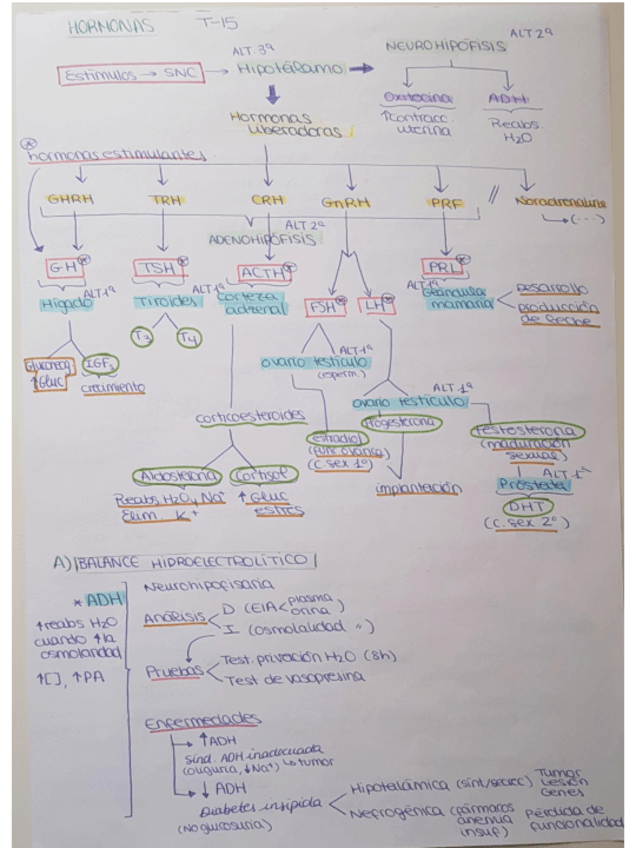 HORMONAS T-15
ALT. 3ª ALT 2ª
Estímulos → SNC → Hipotálamo → NEUROHIPÓFISIS
Oxitocina ADH
↑Contracc. uterina
Reabs. H₂O
Hormonas liberadoras
* hormonas estimulantes
GHRH TRH CRH GnRH PRF // Noradrenalina
→(...)
ALT 2ª
ADENOHIPÓFISIS
GH* TSH* ACTH* PRL*
ALT 1ª ALT 1ª ALT 1ª
Hígado Tiroides Corteza adrenal Glándula mamaria
Desarrollo
producción de leche
FSH* LH*
T₃ T₄
Gluconeog. ↑Gluc
IGF₁
crecimiento
ALT 1ª
ovario testículo
(esperm.)
ALT 1ª
ovario testículo
corticoesteroides
estradiol
(func. ovárica)
(C. sex 1º)
Progesterona
implantación
testosterona
(maduración sexual)
ALT 1ª
Próstata
DHT
(C. sex 2º)
Aldosterona Cortisol
Reabs H₂O y Na⁺
Elim K⁺
↑ Gluc
estrés
A) BALANCE HIDROELECTROLÍTICO
* ADH
↑reabs H₂O
cuando ↑ la
osmolaridad
↑[ ], ↑PA
Neurohipofisaria
Análisis
D (EIA < plasma
orina )
I (osmolalidad " )
Pruebas
Test. privación H₂O (8h)
Test de vasopresina
Enfermedades
→ ↑ADH
Sínd. ADH inadecuada
(oliguria, ↓Na⁺) ↳ tumor
→ ↓ ADH
Diabetes insípida
(No glucosuria)
Hipotalámica (sínt/secrec) Tumor
Lesión
Genes
Nefrogénica (fármacos
anemia
insuf)
Pérdida de
funcionalidad